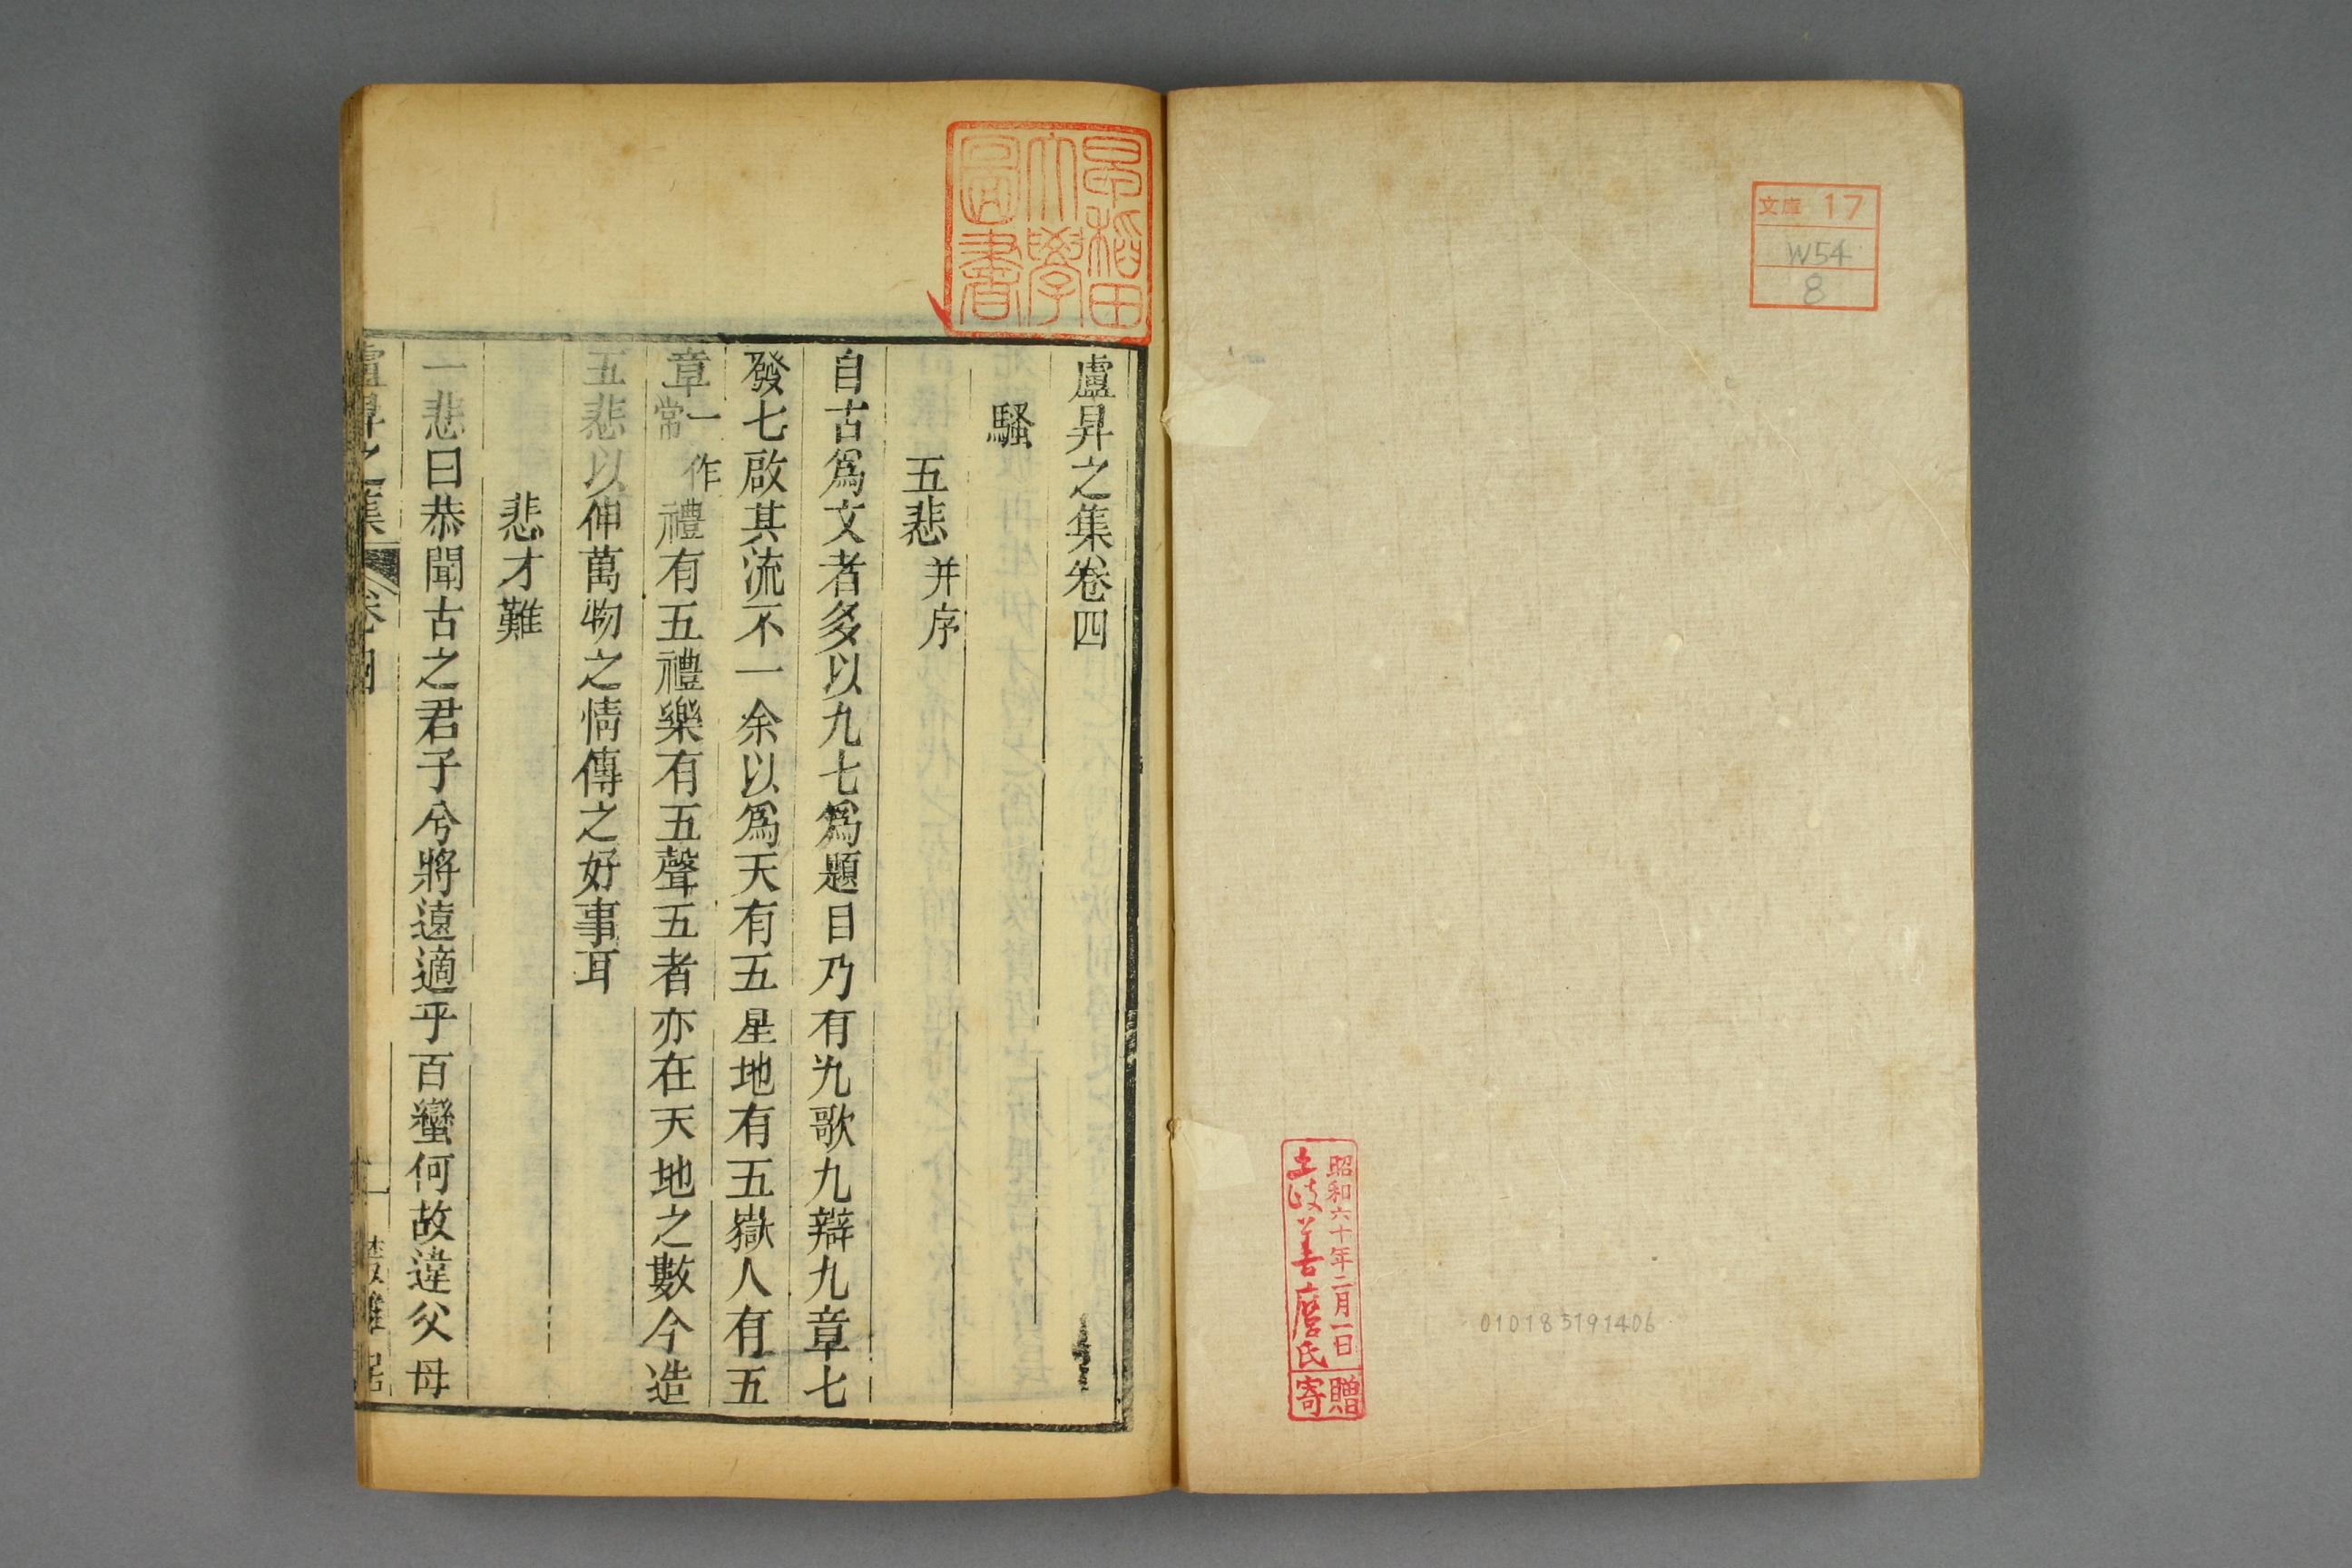 文庫 17
W54
8
昭和六十年二月一日
土岐善麿氏
寄贈
010185191406
早稲田大學圖書
盧昇之集卷四
騷
五悲并序
自古爲文者多以九七爲題目乃有九歌九辯九章七
發七啟其流不一余以爲天有五星地有五嶽人有五
章一作常禮有五禮樂有五聲五者亦在天地之數今造
五悲以伸萬物之情傳之好事耳
悲才難
一悲曰恭聞古之君子兮將遠適乎百蠻何故違父母
盧昇之集 卷四 一